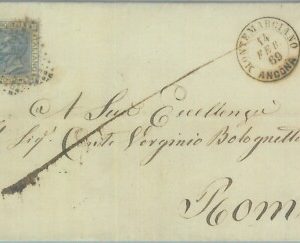 MONTEMARCIANO
14
FEB
69
ANCONA
A Sua Eccellenza
Sigr. Conte Virginio Bolognetti
Rom